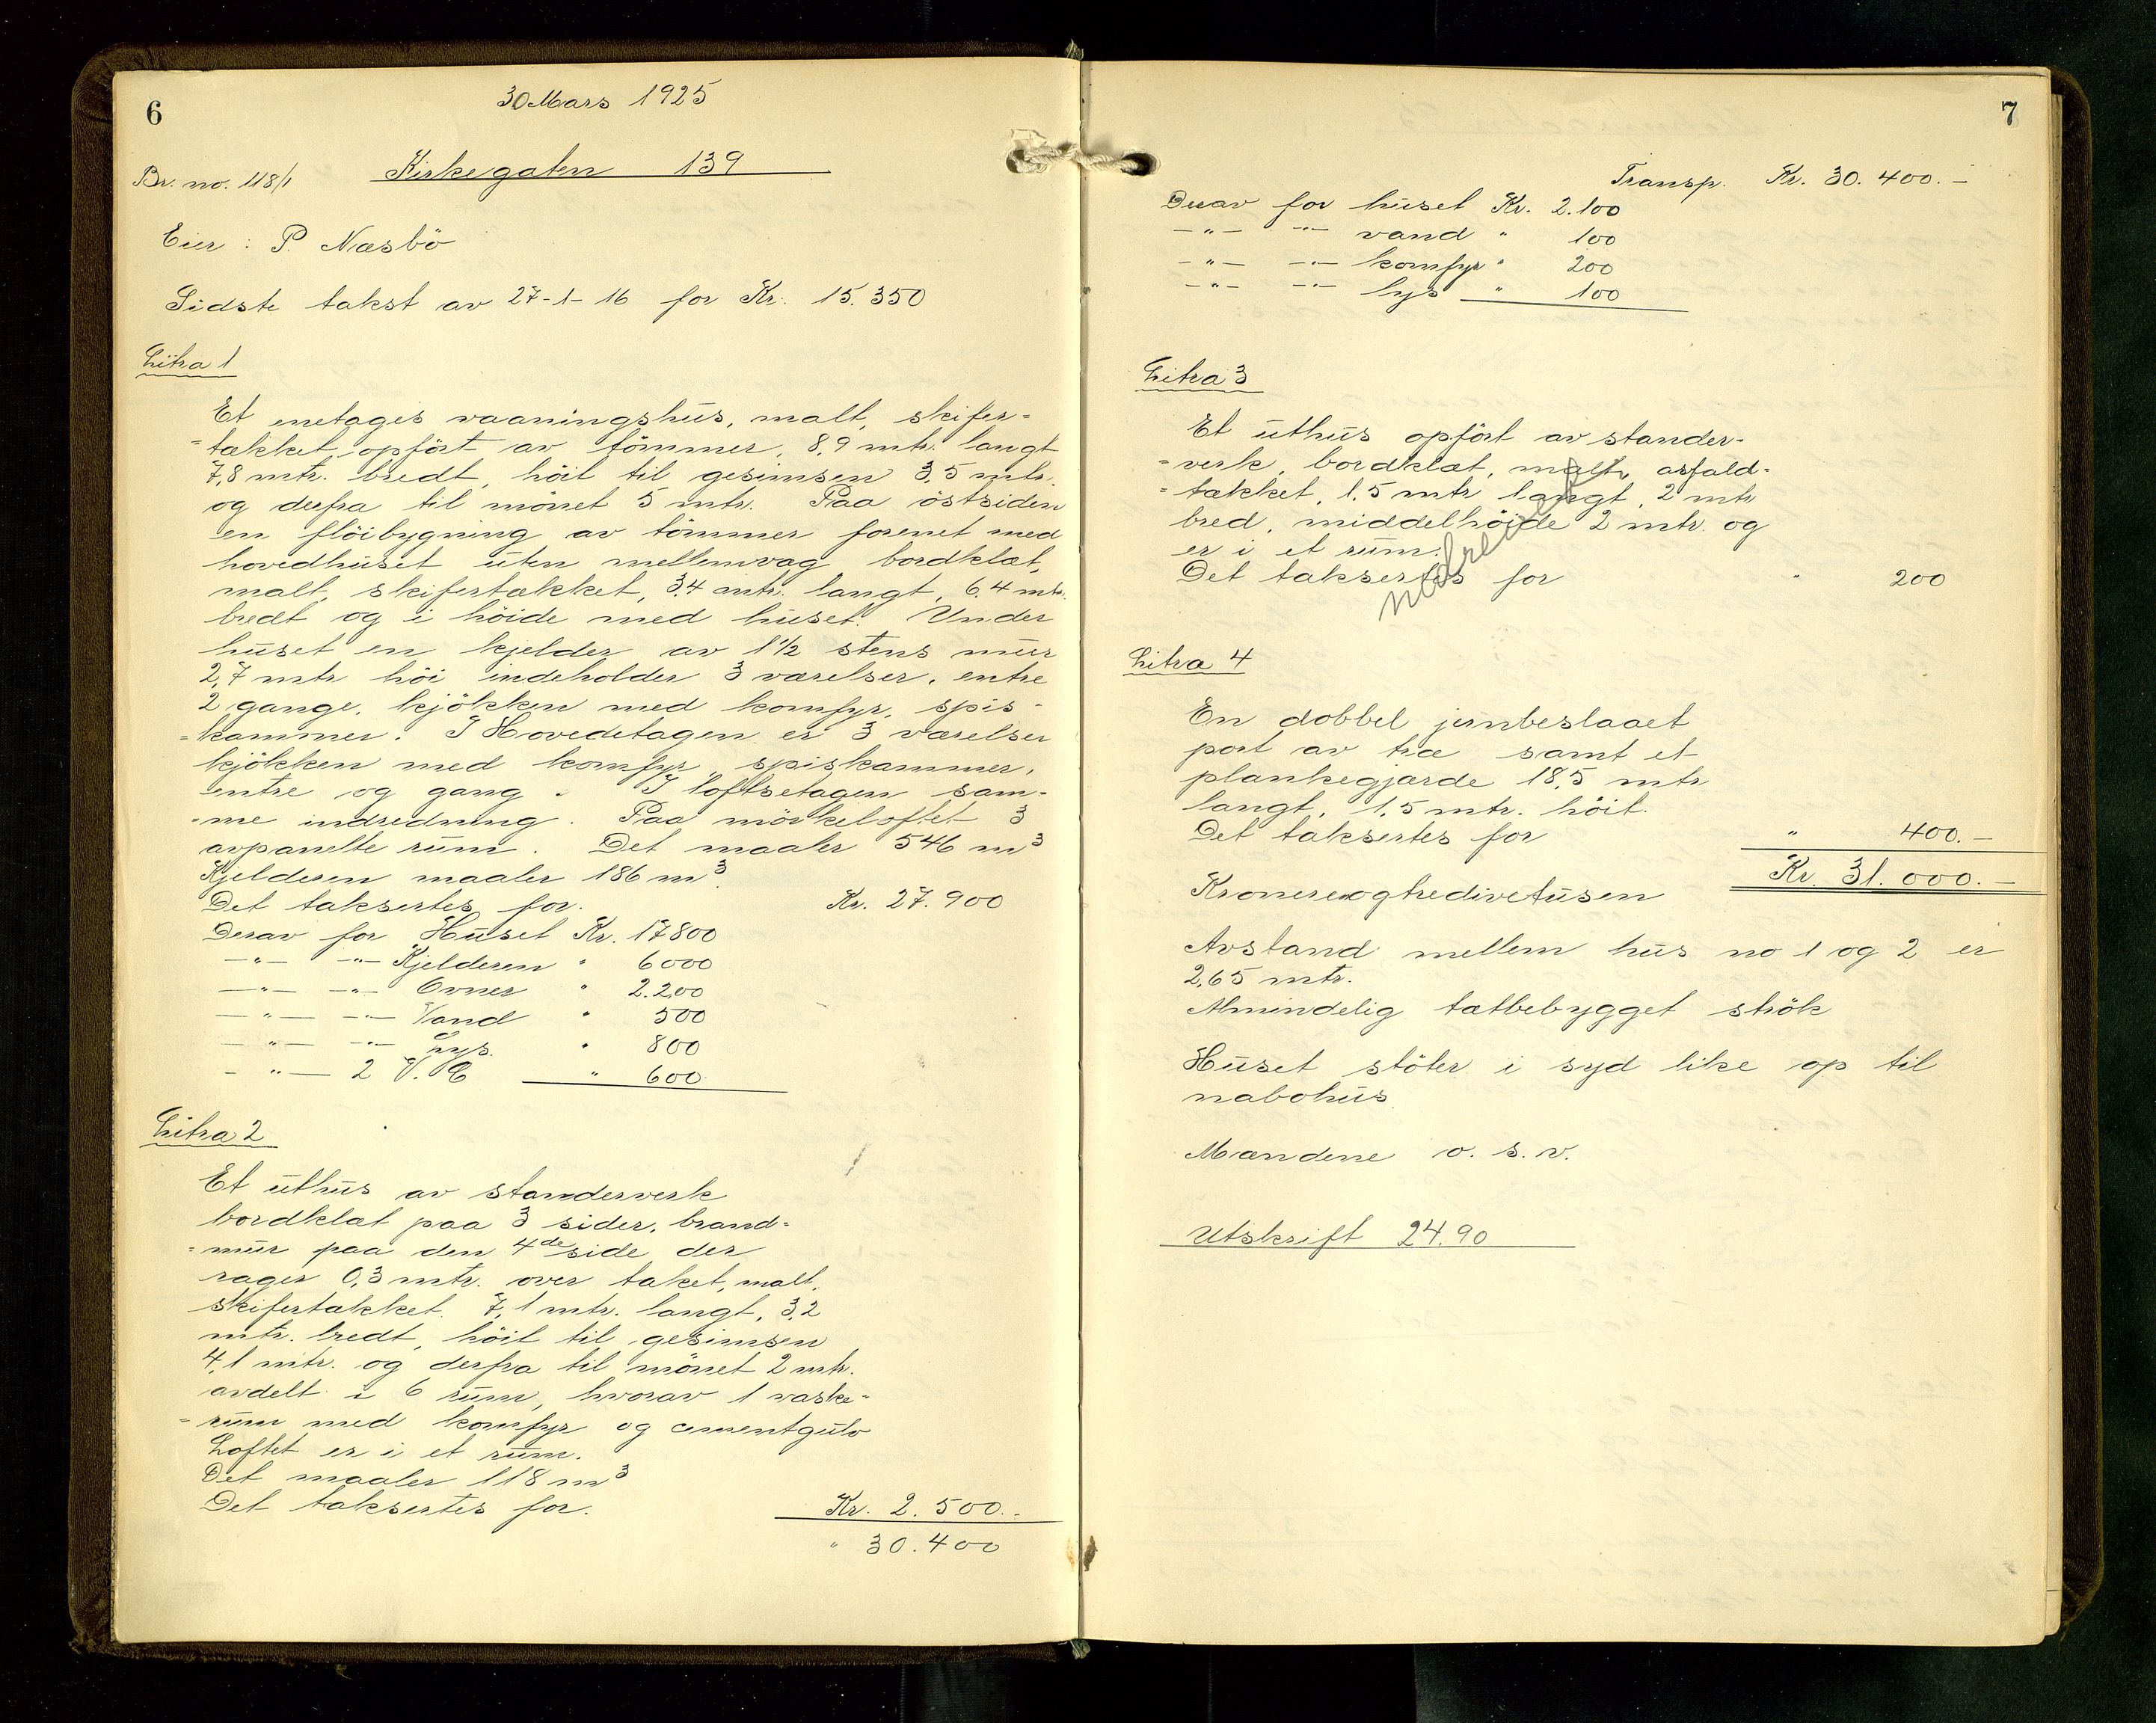 6
30 Mars 1925
Br. no. 118/1 Kirkegaten 139
Eier: P. Næsbö
Sidste takst av 27-1-16 for Kr. 15.350
Litra 1
Et enetages vaaningshus, malt, skifer=
=tækket, opfört av tömmer, 8,9 mtr. langt
7,8 mtr. bredt, höit til gesimsen 3,5 mtr.
og derfra til mönet 5 mtr. Paa östsiden
en flöibygning av tömmer forenet med
hovedhuset uten mellemvæg bordklæt,
malt, skifertækket, 3,4 mtr. langt, 6,4 mtr.
bredt og i höide med huset. Under
huset en kjelder av 1½ stens mur
2,7 mtr höi indeholder 3 værelser, entre
2 gange, kjökken med komfyr, spis-
=kammer. I Hovedetagen er 3 værelser
kjökken med komfyr, spiskammer,
entre og gang. I loftsetagen sam-
=me indredning. Paa mörkeloftet 3
avpanelte rum. Det maaler 546 m³
Kjelderen maaler 186 m³.
Det taksertes for. Kr. 27.900
Derav for Huset Kr. 17800
—"— —"— Kjelderen " 6000
—"— —"— Ovner " 2.200
—"— —"— Vand " 500
—"— —"— Lys. " 800
—"— 2 V.C " 600
Litra 2
Et uthus av standerverk
bordklæt paa 3 sider, brand=
=mur paa den 4de side der
rager 0,3 mtr. over taket, malt,
skifertækket 7,1 mtr. langt, 3,2
mtr. bredt, höit til gesimsen
4,1 mtr. og derfra til mönet 2 mtr.
avdelt i 6 rum, hvorav 1 vaske=
=rum med komfyr og cementgulv
Loftet er i et rum.
Det maaler 118 m³
Det taksertes for. Kr. 2.500.-
" 30.400
7
Transp. Kr. 30.400.-
Derav for huset Kr. 2.100
—"— —"— vand " 100
—"— —"— komfyr " 200
—"— —"— lys " 100
Litra 3
Et uthus opfört av stander-
=verk, bordklæt, malt, asfald=
=tækket, 1,5 mtr langt, 2 mtr
bred, middelhöide 2 mtr. og
er i et rum.
Det taksertes for " 200
nedrevet
Litra 4
En dobbel jernbeslaaet
port av træ samt et
plankegjærde 18,5 mtr
langt, 1,5 mtr. höit.
Det taksertes for " 400.-
Kr. 31.000.-
Kronerenogtredivetusen
Avstand mellem hus no 1 og 2 er
2,65 mtr.
Almindelig tætbebygget strök
Huset stöter i syd like op til
nabohus
Mændene o. s. v.
Utskrift 24.90